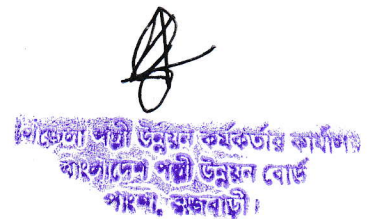 উপজেলা পল্লী উন্নয়ন কর্মকর্তার কার্যালয়
বাংলাদেশ পল্লী উন্নয়ন বোর্ড
পাংশা, রাজবাড়ী।